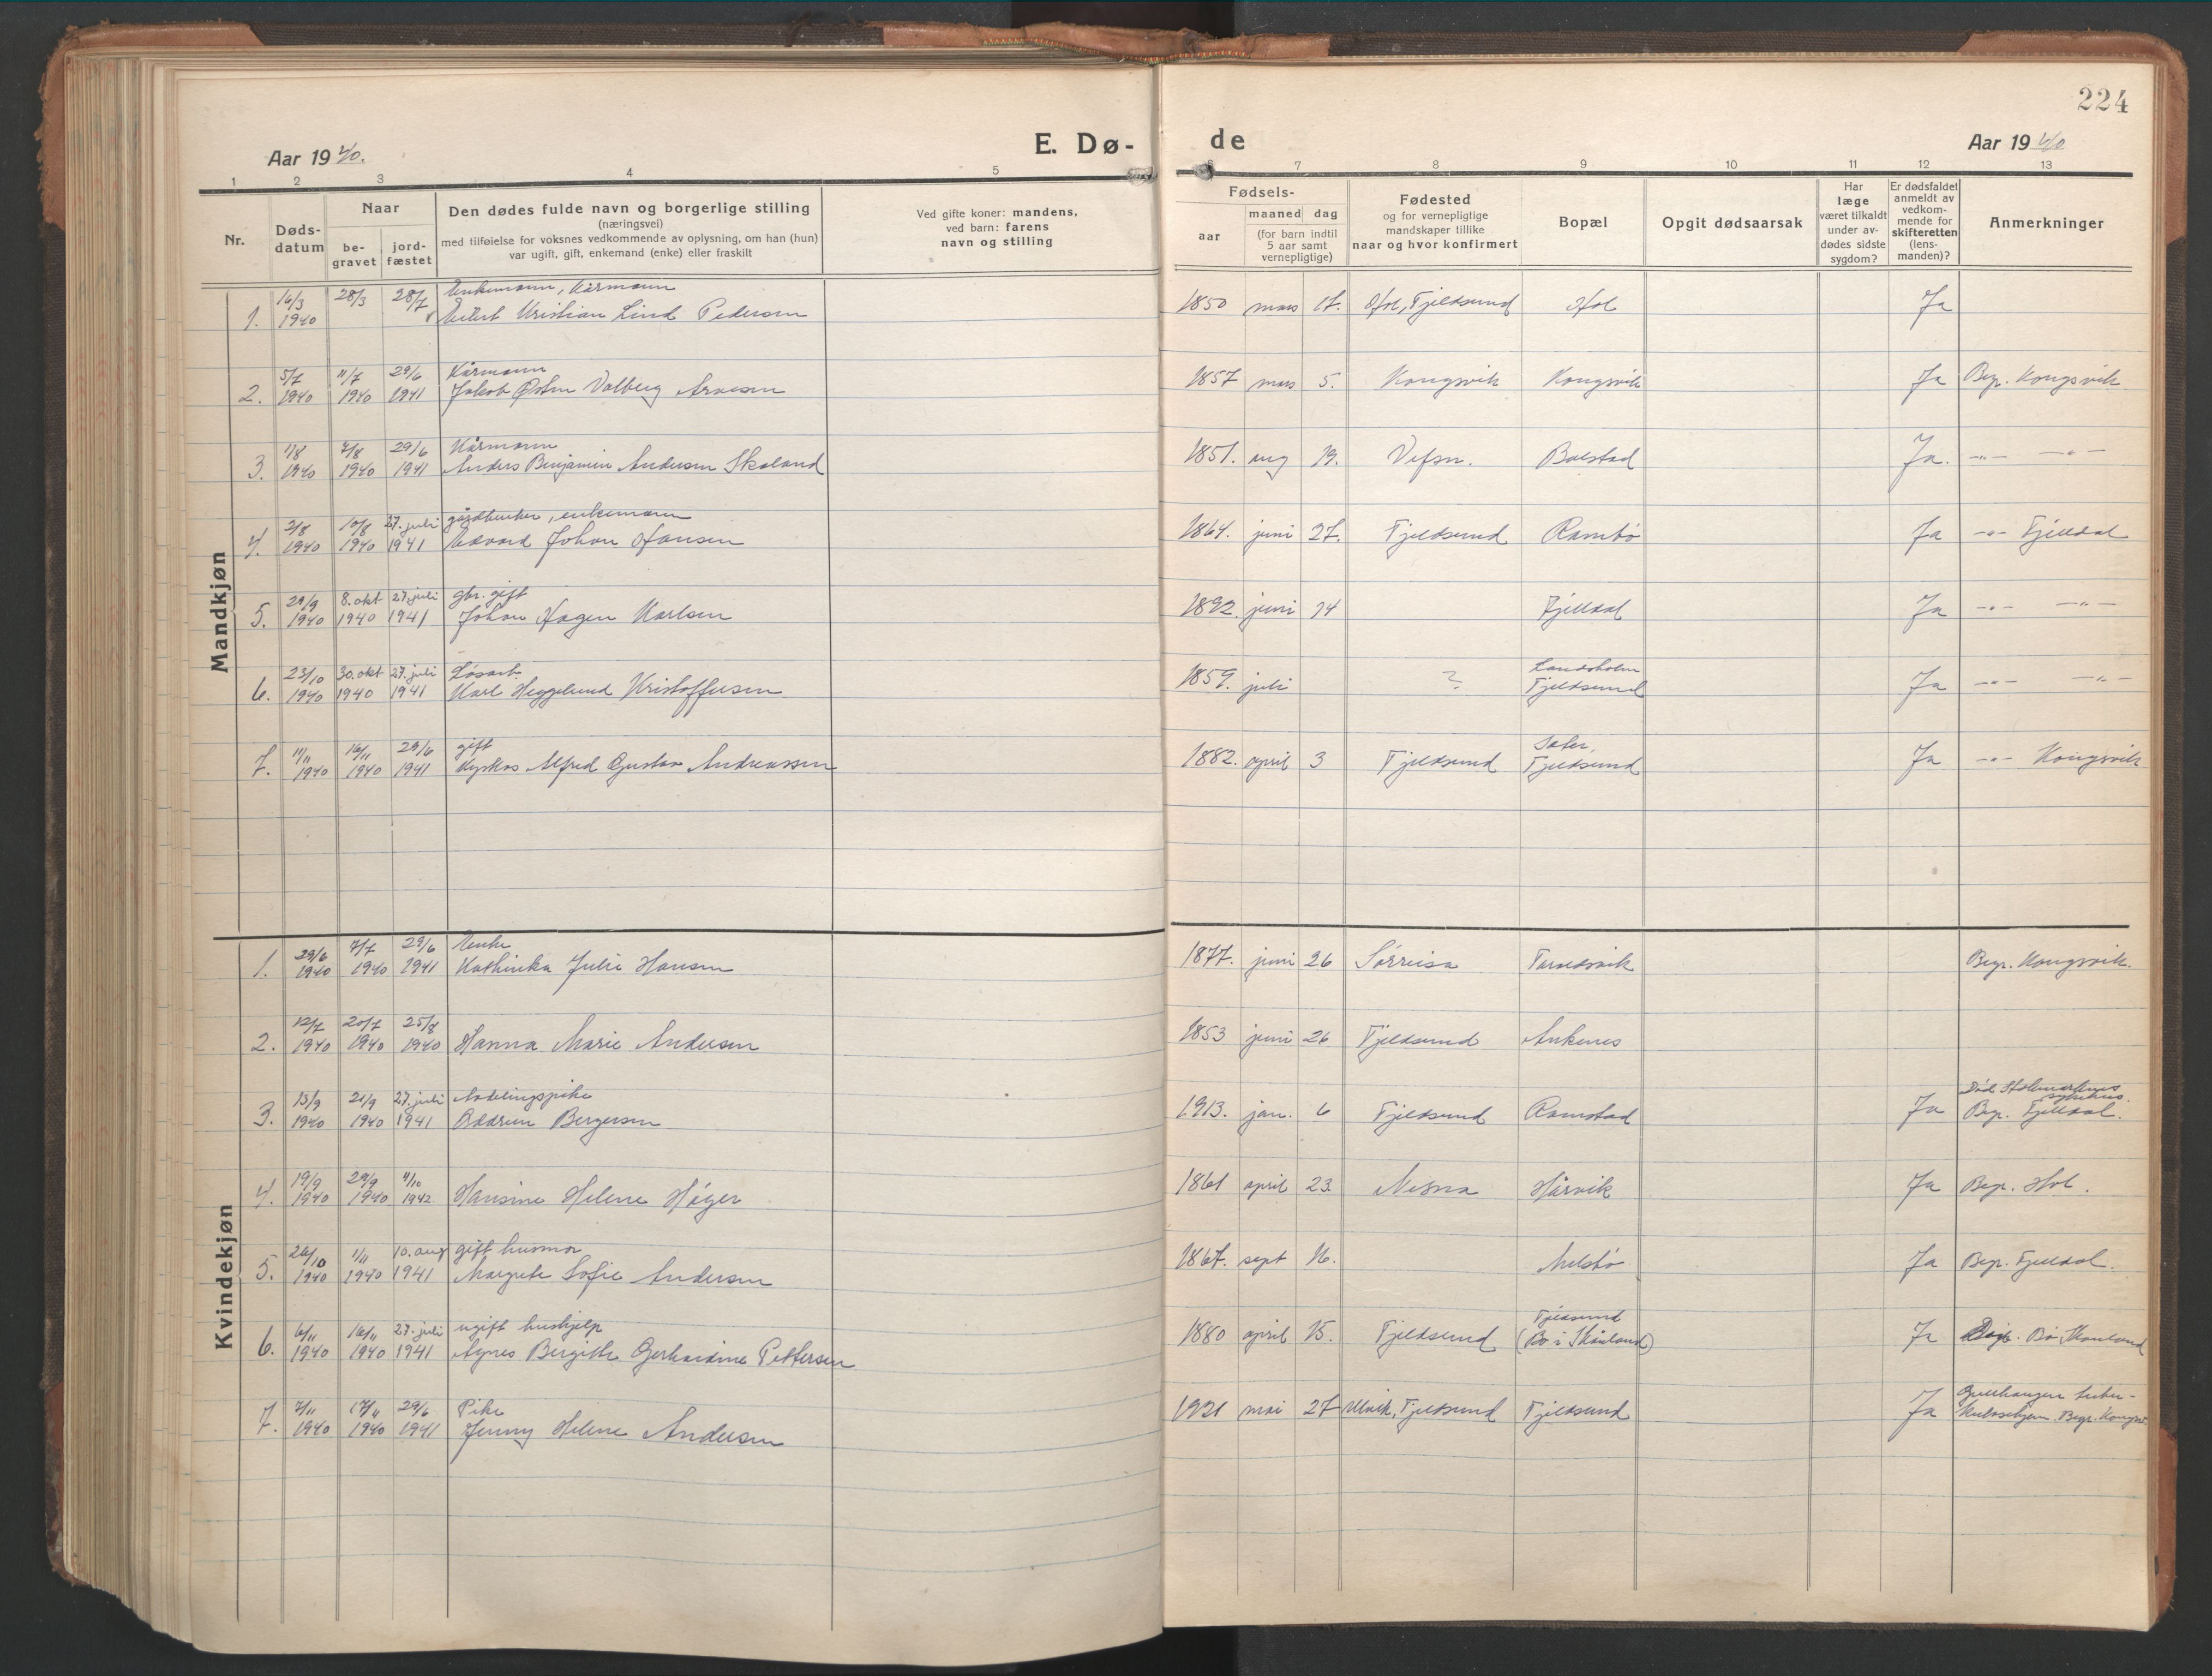 224
Aar 1940.
E. Dø-
de
Aar 1940
1 2 3 4 5
6 7 8 9 10 11 12 13
Nr.
Døds-
datum
Naar
be-
gravet
jord-
fæstet
Den dødes fulde navn og borgerlige stilling
(næringsvei)
med tilføielse for voksnes vedkommende av oplysning, om han (hun)
var ugift, gift, enkemand (enke) eller fraskilt
Ved gifte koner: mandens,
ved barn: farens
navn og stilling
Fødsels-
aar
maaned dag
(for barn indtil
5 aar samt
vernepligtige)
Fødested
og for vernepligtige
mandskaper tillike
naar og hvor konfirmert
Bopæl
Opgit dødsaarsak
Har
læge
været tilkaldt
under av-
dødes sidste
sygdom?
Er dødsfaldet
anmeldt av
vedkom-
mende for
skifteretten
(lens-
manden)?
Anmerkninger
Mandkjøn
16/3 28/3 28/7 Enkemann, Kårmann
1. 1940 Eilert Kristian Lind Pedersen 1850 mars 17. Hol, Tjeldsund Hol Ja
5/7 11/7 29/6 Kårmann
2. 1940 1940 1941 Jakob Østen Volberg Arnesen 1857 mars 5. Kongsvik Kongsvik Ja Begr. Kongsvik
1/8 7/8 29/6 Kårmann
3. 1940 1940 1941 Anders Benjamin Andersen Skoland 1851. aug 19. Vefsn. Balstad Ja. -"- -"-
2/8 10/8 27. juli gårdbruker, enkemann
4. 1940 1940 1941 Edvard Johan Hansen 1864. juni 27. Tjeldsund Rambø Ja -"- Fjelldal
29/9 8. okt 27. juli gbr. gift
5. 1940 1940 1941 Johan Hagen Karlsen 1892. juni 14 Fjelldal Ja -"- -"-
23/10 30. okt 27. juli Løsarb. Sandsholm
6. 1940 1940 1941 Karl Heggelund Kristoffersen 1859. juli ? Tjeldsund Ja -"- -"-
11/11 16/11 29/6 gift Sater,
7. 1940 1940 1941 Alfred Gustav Andreassen 1882. april 3 Tjeldsund Tjeldsund Ja -"- Kongsvik
Kvindekjøn
29/6 7/7 29/6 Enke
1. 1940 1940 1941 Kathinka Julie Hansen 1877. juni 26 Sørreisa Begr. Kongsvik.
12/7 20/7 25/8
2. 1940 1940 1940 Hanna Marie Andersen 1853 juni 26 Tjeldsund Ankenes
13/9 21/9 27. juli Avdelingspike Død Stokmarknes
sykehus.
3. 1940 1940 1941 Oddrun Bergersen 1913. jan. 6 Tjeldsund Ramstad Ja Begr. Fjelldal.
19/9 29/9 11/10
4. 1940 1940 1942 Hansine Helene Høger 1861 april 23 Nesna Hårvik Ja Begr. Hol.
26/10 1/11 10. aug gift husmor
5. 1940 1940 1941 Margrete Sofie Andersen 1867. sept 16. Ja Begr. Fjelldal.
6/11 16/11 27. juli ugift hushjelp Tjeldsund
6. 1940 1940 1941 Agnes Bergithe Gerhardine Pettersen 1880 april 15. Tjeldsund (Bø i Skånland) Ja Begr. Bø, Skånland
7/11 17/11 29/6 Pike Gullhaugen tuber-
7. 1940 1940 1941 Jenny Helene Andersen 1921 mai 27 Ulvik, Tjeldsund Tjeldsund Ja kulosehjem. Begr. Kongsv